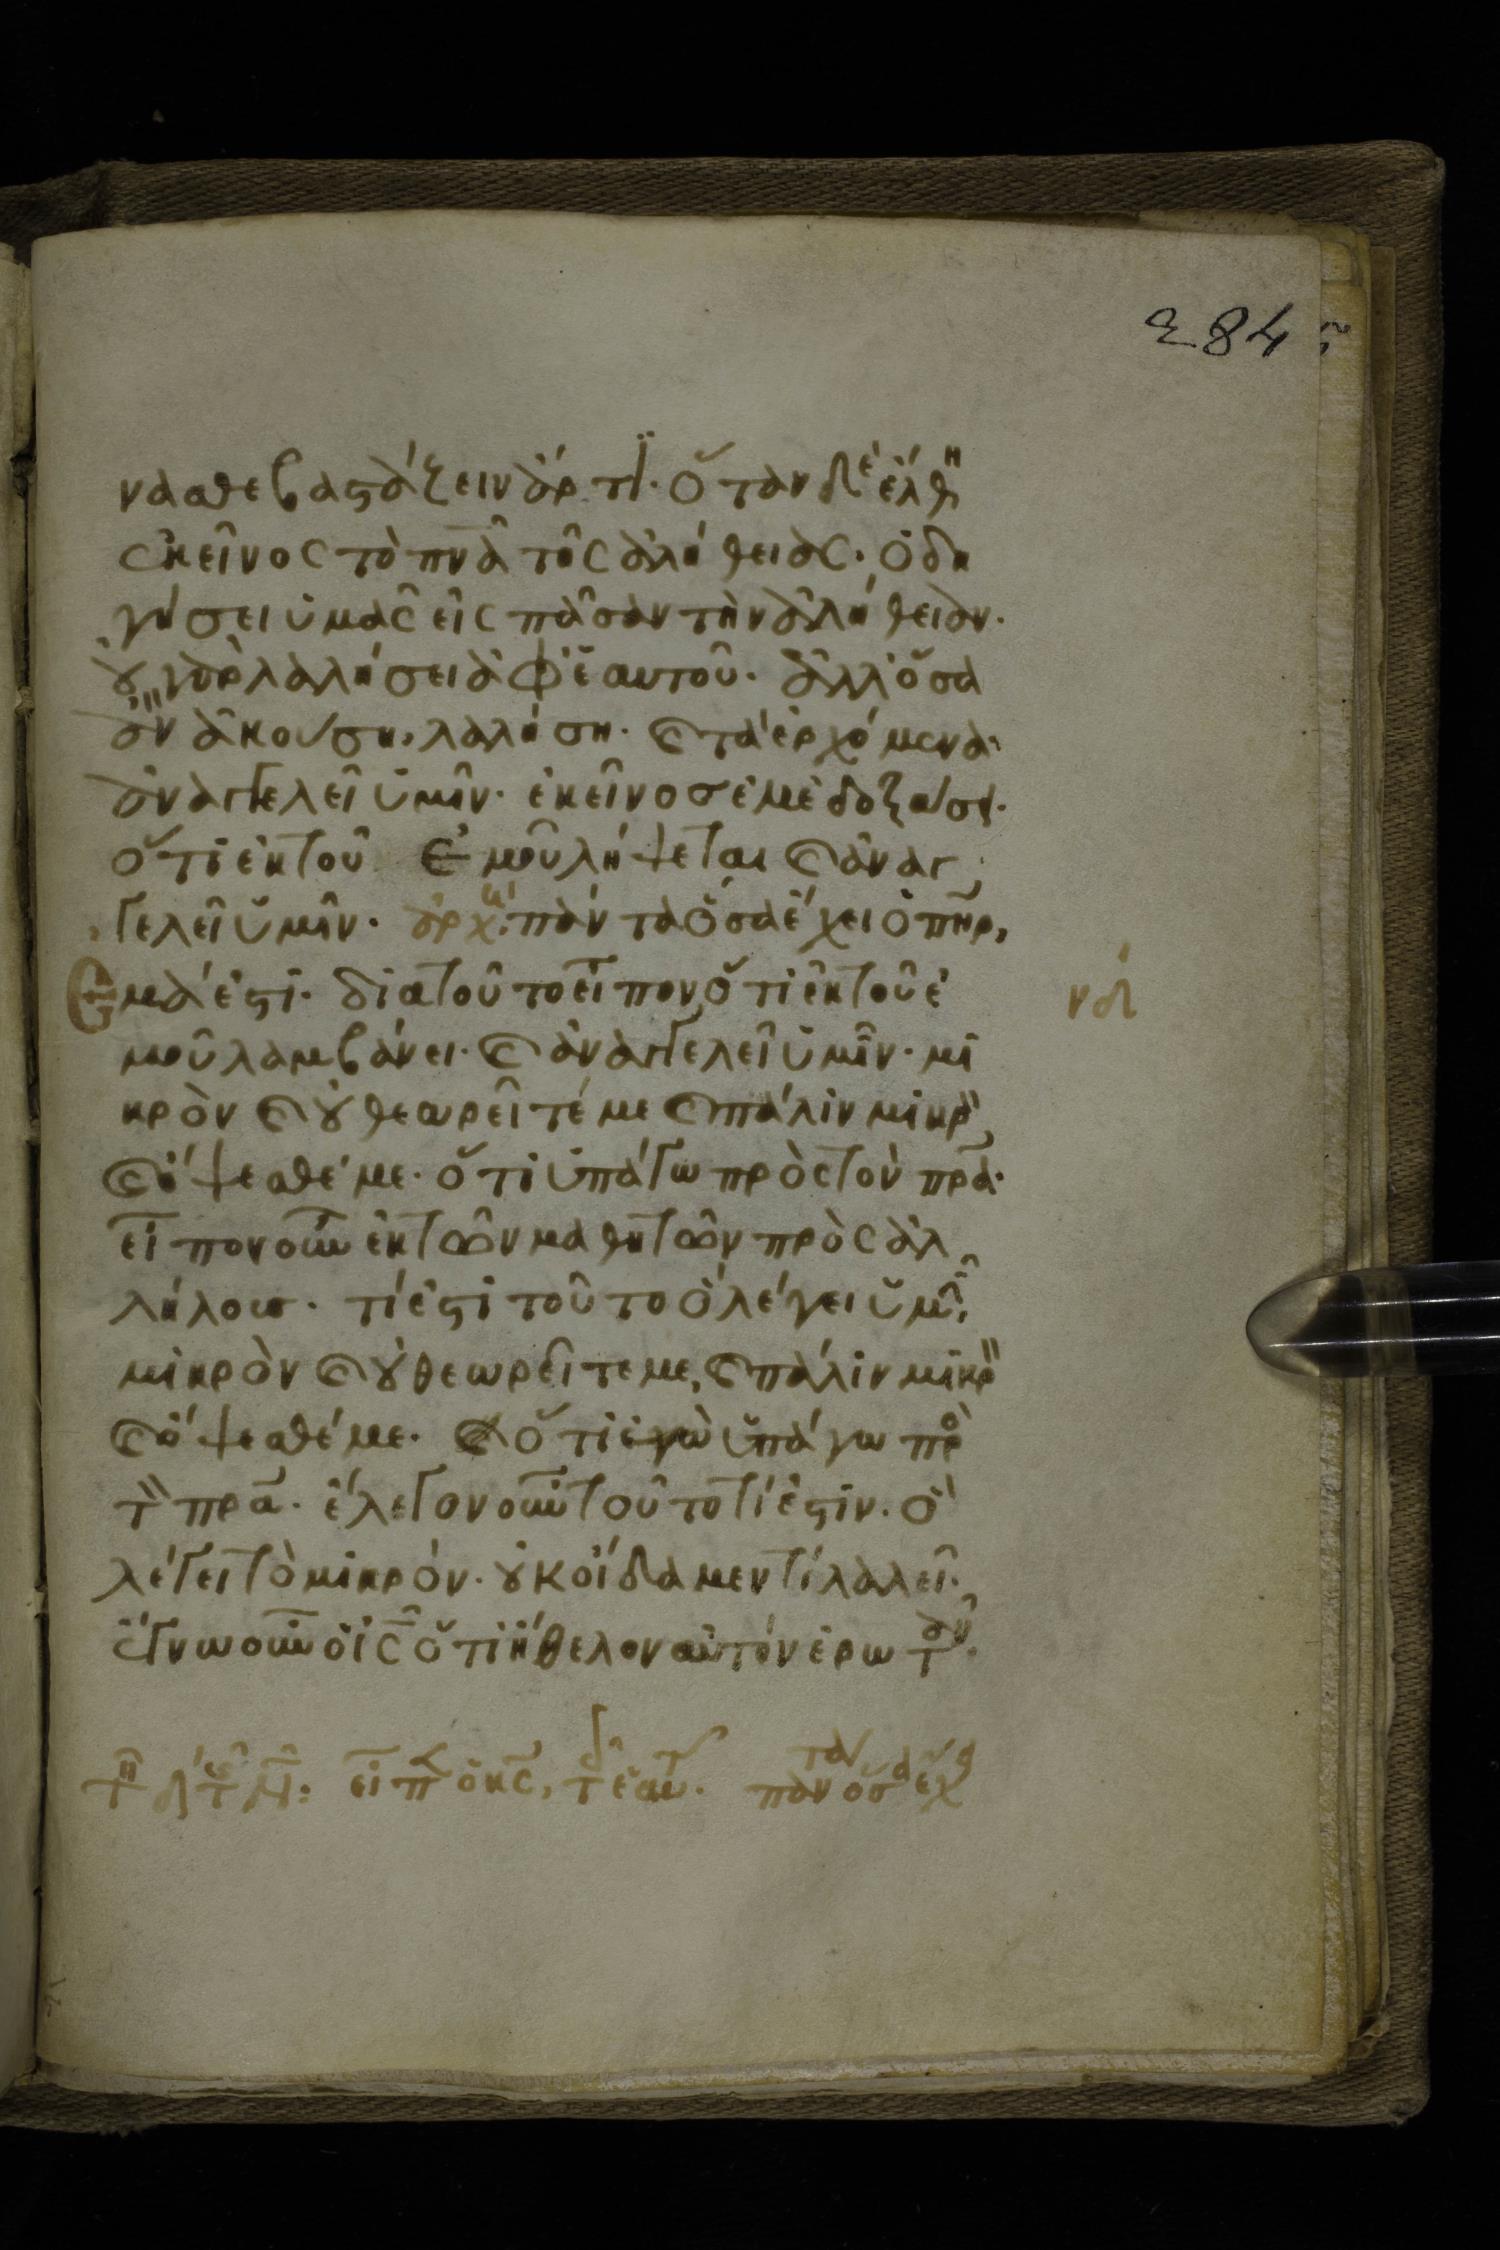 284
νασθε βαστάζειν ἄρτι. ὅταν δὲ ἔλθη
ἐκεῖνος τὸ πνᾶ τῆς ἀληθείας. ὁδη
γήσει ὑμᾶς εἰς πᾶσαν τὴν ἀλήθειαν.
οὐ γὰρ λαλήσει ἀφ' ἑαυτοῦ. ἀλλ' ὅσα
ἂν ἀκούση, λαλήση. καὶ τὰ ἐρχόμενα
ἀναγγελεῖ ὑμῖν. ἐκεῖνος ἐμὲ δοξάσει.
ὅτι ἐκ τοῦ ἐμοῦ λήψεται καὶ ἀναγ
γελεῖ ὑμῖν. ἀρχ πάντα ὅσα ἔχει ὁ πηρ,
ἐμά ἐστι. διατοῦτο εἶπον, ὅτι ἐκ τοῦ ἐ
μοῦ λαμβάνει. καὶ ἀναγγελεῖ ὑμῖν. μι
κρὸν καὶ οὐ θεωρεῖτέ με καὶ πάλιν μικρὸν,
καὶ ὄψεσθέ με. ὅτι ὑπάγω πρὸς τὸν πρα.
εἶπον οὖν ἐκ τῶν μαθητῶν πρὸς ἀλ
λήλους. τί ἐστι τοῦτο ὃ λέγει ὑμῖν,
μικρὸν καὶ οὐ θεωρεῖτε με, καὶ πάλιν μικρὸν
καὶ ὄψεσθέ με. καὶ ὅτι ἐγὼ ὑπάγω προ
τὸν πρα. ἔλεγον οὖν τοῦτο τί ἐστιν. ὃ
λέγει τὸ μικρόν. οὐκ οἴδαμεν τί λαλεῖ.
ἔγνω οὖν ὁ ις ὅτι ἤθελον αὐτὸν ἐρωτᾶν.
νδ
εἶπ ὁ κς, τ ἑαυτ. πάντα ὅσα ἔχ